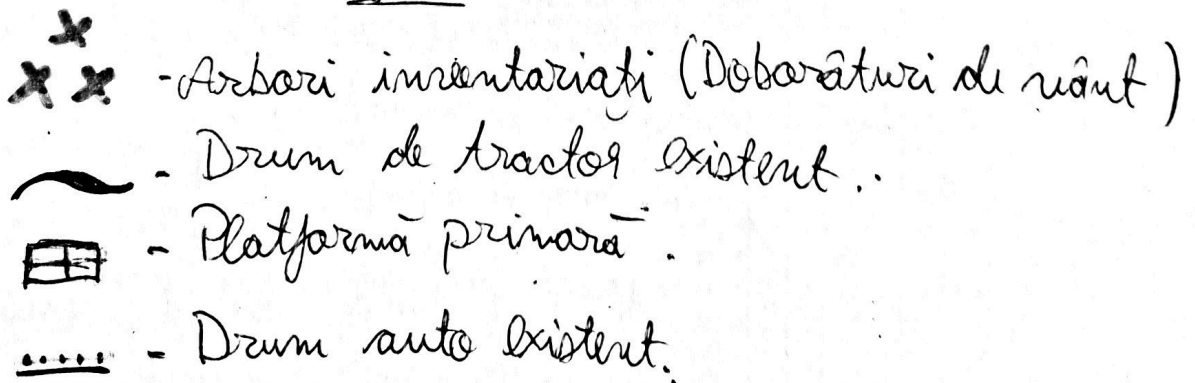 - Arbori inventariați (Doborâturi de vânt)
- Drum de tractor existent.
- Platformă primară.
- Drum auto existent.